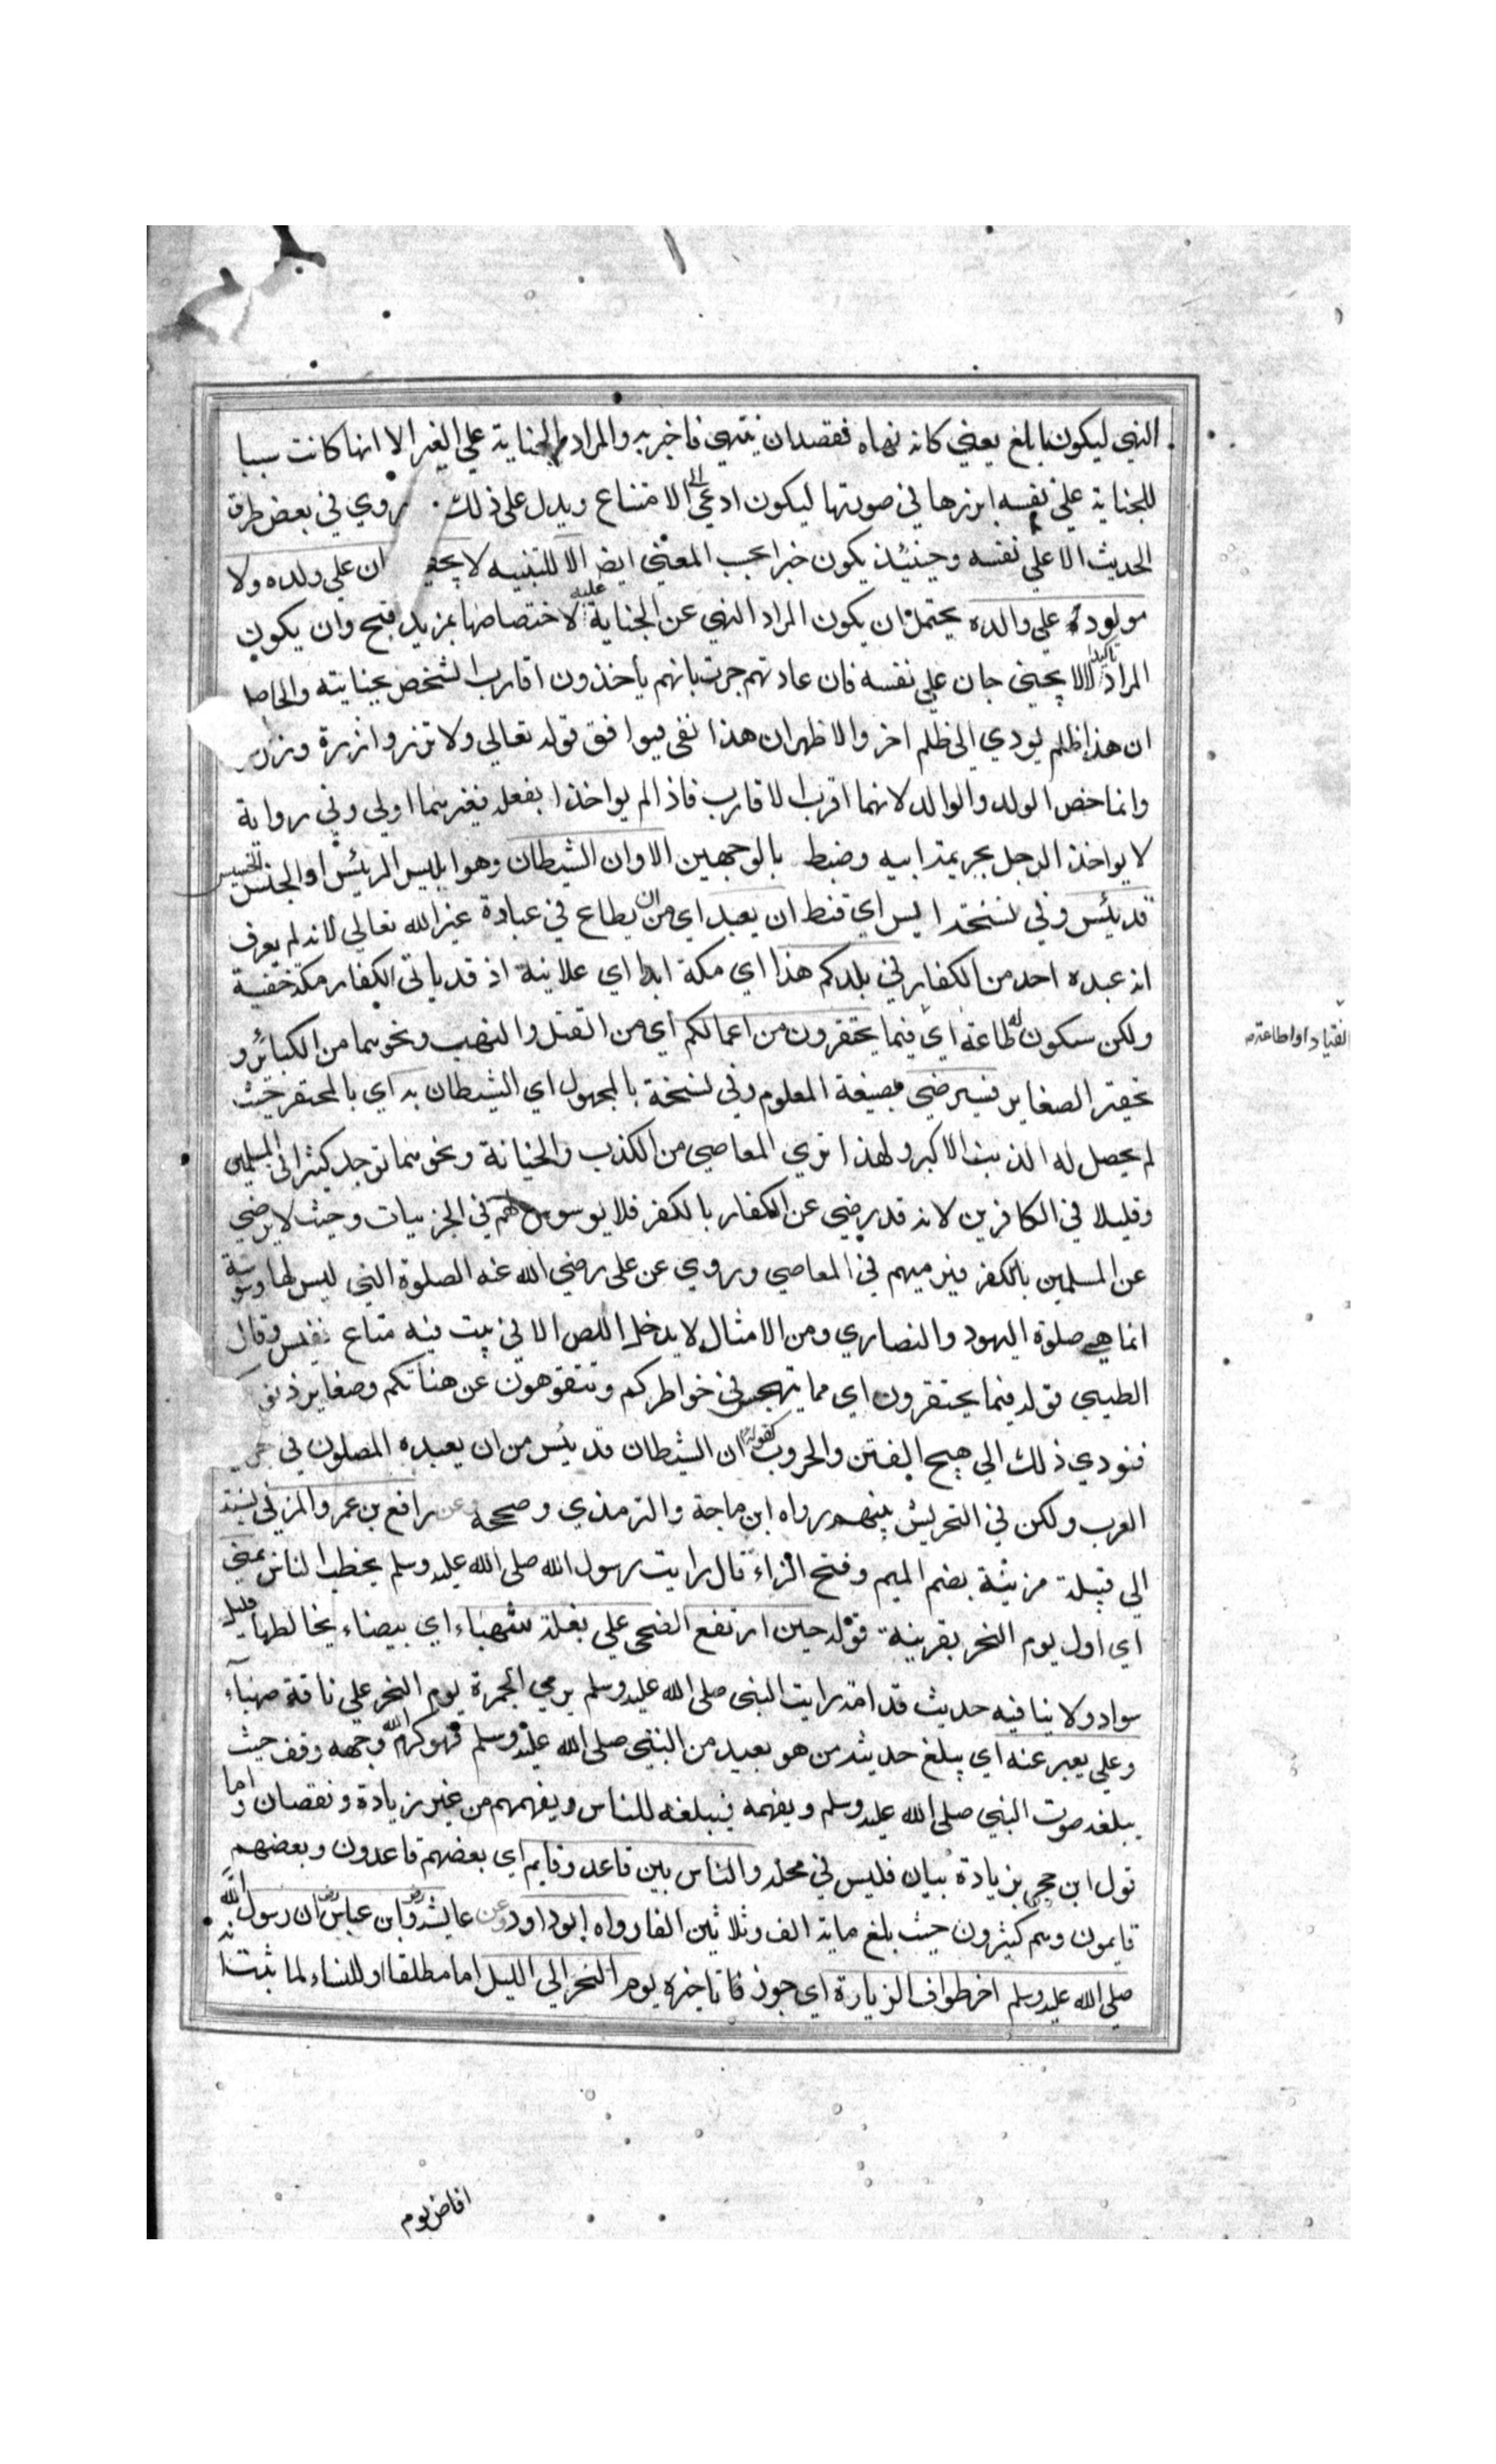 النهي ليكون ابلغ يعني كانه نهاه فقصد ان ينتهي فاخبر به والمراد الجناية علي الغير الا انها كانت سببا
للجناية علي نفسه ابرزها في صورتها ليكون ادعي الي الامتناع ويدل علي ذلك روي في بعض طرق
الحديث الا علي نفسه وحينئذ يكون خبرا بحسب المعني ايضا الا للتنبيه لا يجني ان علي ولده ولا
مولود علي والده يحتمل ان يكون المراد النهي عن الجناية عليه لاختصاصها بمزيد قبح وان يكون
المراد تاكيد الا لا يجني جان علي نفسه فان عادتهم جرت بانهم يأخذون اقارب الشخص بجنايته والحاصل
ان هذا ظلم يودي الي ظلم اخر والاظهر ان هذا نفي فيوافق قوله تعالي ولا تزر وازرة وزر
وانما خص الولد والوالد لانهما اقرب الاقارب فاذا لم يواخذا بفعله فغيرهما اولي وفي رواية
لا يواخذ الرجل بجريمة ابيه وضبط بالوجهين الا وان الشيطان وهو ابليس الرئيس او الجنس الخسيس
قد يئس وفي نسخة ايس اي قنط ان يعبد اي من ان يطاع في عبادة غير الله تعالي لانه لم يعرف
انه عبده احد من الكفار في بلدكم هذا اي مكة ابدا اي علانية اذ قد ياتي الكفار مكة خفية
ولكن ستكون له طاعة اي فيما يحتقرون من اعمالكم اي من القتل والنهب ونحوهما من الكبائر و
تحقير الصغاير فسيرضي بصيغة المعلوم وفي نسخة بالمجهول اي الشيطان به اي بالمحتقر حيث
لم يحصل له الذنب الاكبر ولهذا تري المعاصي من الكذب والخيانة ونحوهما توجد كثيرا في المسلمين
وقليلا في الكافرين لانه قد رضي عن الكفار بالكفر فلا يوسوس لهم في الجزييات وحيث لا يرضي
عن المسلمين بالكفر فيرميهم في المعاصي وروي عن علي رضي الله عنه الصلوة التي ليس لها وسوسة
انما هي صلوة اليهود والنصاري ومن الامثال لا يدخل اللص الا في بيت فيه متاع نفيس وقال
الطيبي قوله فيما يحتقرون اي مما يتهجس في خواطركم وتتفوهون عن هناتكم وصغاير ذنو
فتودي ذلك الي هيج الفتن والحروب كقوله ان الشيطان قد يئس من ان يعبده المصلون في
العرب ولكن في التحريش بينهم رواه ابن ماجة والترمذي وصححه وعن رافع بن عمرو المزني نسبة
الي قبيلة مزينة بضم الميم وفتح الزاء قال رايت رسول الله صلي الله عليه وسلم يخطب الناس بمني
اي اول يوم النحر بقرينة قوله حين ارتفع الضحي علي بغلة شهباء اي بيضاء يخالطها قليل
سواد ولا ينافيه حديث قدامة رايت النبي صلي الله عليه وسلم يرمي الجمرة يوم النحر علي ناقة صهبآء
وعلي يعبر عنه اي يبلغ حديثه من هو بعيد من النبي صلي الله عليه وسلم فهو كرم الله وجهه وقف حيث
يبلغه صوت النبي صلي الله عليه وسلم ويفهمه فيبلغه للناس ويفهمهم من غير زيادة ونقصان واما
قول ابن حجر بزيادة بيان فليس في محله والناس بين قاعد وقايم اي بعضهم قاعدون وبعضهم
قايمون وهم كثيرون حيث بلغ ماية الف وثلاثين الفا رواه ابو داود وعن عايشة وابن عباس ان رسول الله
صلي الله عليه وسلم اخر طواف الزيارة اي جوز تاخيره يوم النحر الي الليل اما مطلقا او للنساء لما ثبت انه
انقياد او اطاعة
افاض يوم